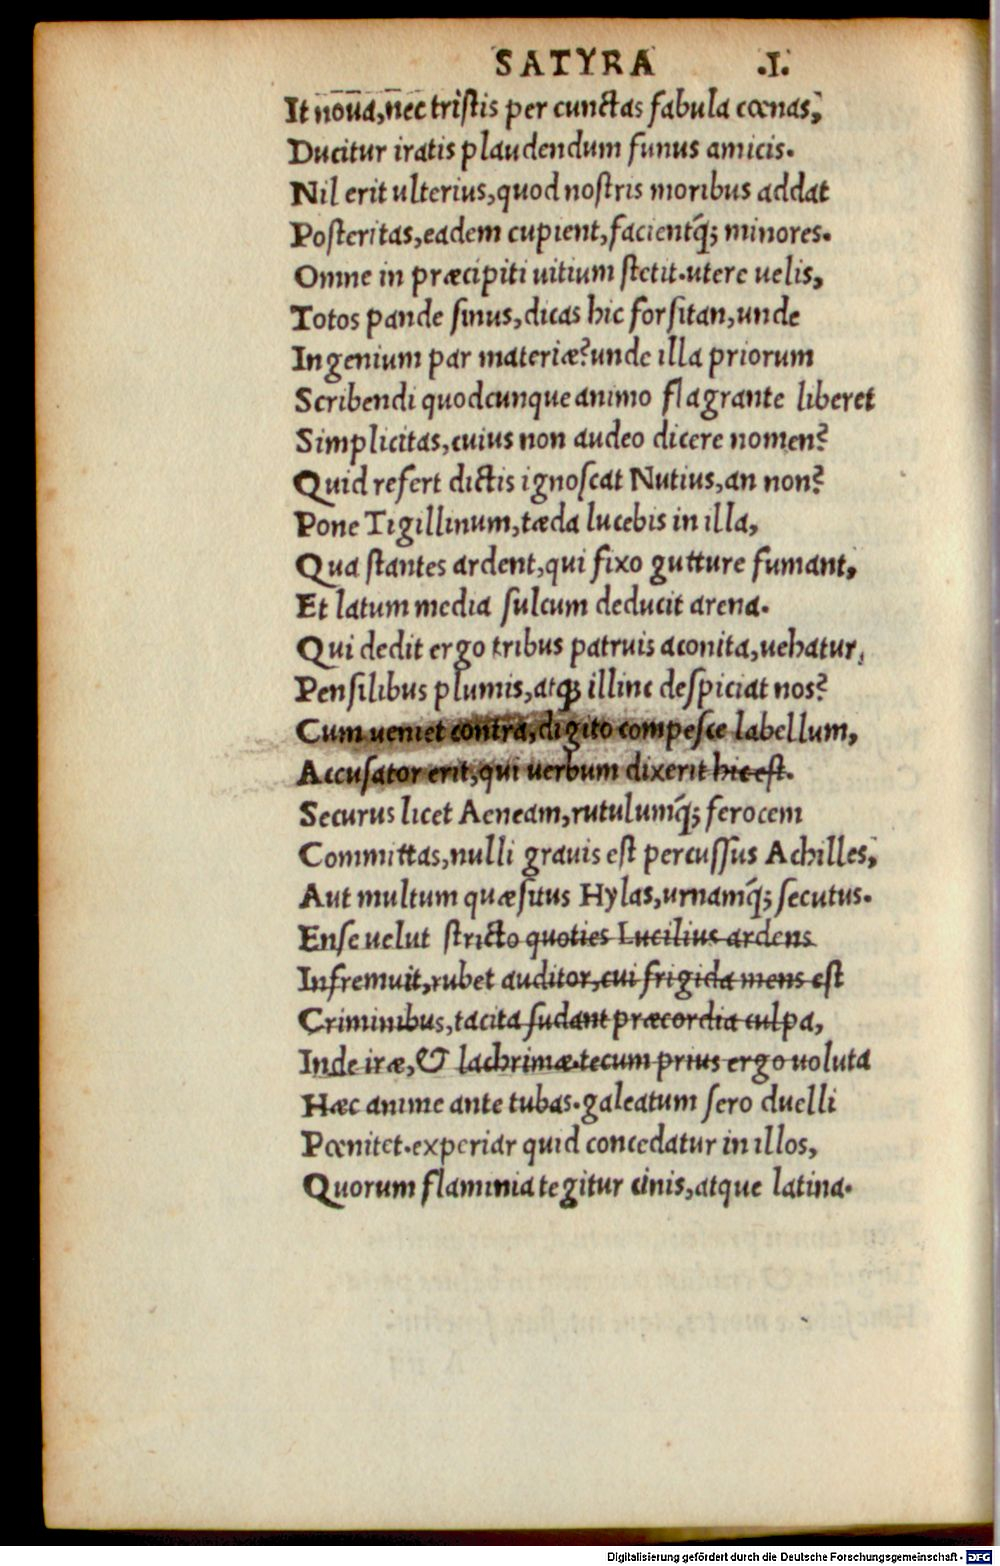 SATYRA .I.
It noua, nec tristis per cunctas fabula cœnas,
Ducitur iratis plaudendum funus amicis.
Nil erit ulterius, quod nostris moribus addat
Posteritas, eadem cupient, facientq́; minores.
Omne in præcipiti uitium stetit. utere uelis,
Totos pande sinus, dicas hic forsitan, unde
Ingenium par materiæ? unde illa priorum
Scribendi quodcunque animo flagrante liberet
Simplicitas, cuius non audeo dicere nomen?
Quid refert dictis ignoscat Nutius, an non?
Pone Tigillinum, tæda lucebis in illa,
Qua stantes ardent, qui fixo gutture fumant,
Et latum media sulcum deducit arena.
Qui dedit ergo tribus patruis aconita, uehatur,
Pensilibus plumis, atq; illinc despiciat nos?
Cum ueniet contra, digito compesce labellum,
Accusator erit, qui uerbum dixerit hic est.
Securus licet Aeneam, rutulumq́; ferocem
Committas, nulli grauis est percussus Achilles,
Aut multum quæsitus Hylas, urnamq́; secutus.
Ense uelut stricto quoties Lucilius ardens
Infremuit, rubet auditor, cui frigida mens est
Criminibus, tacita sudant præcordia culpa,
Inde iræ, & lachrimæ. tecum prius ergo uoluta
Hæc anime ante tubas. galeatum sero duelli
Pœnitet. experiar quid concedatur in illos,
Quorum flaminia tegitur cinis, atque latina.
Digitalisierung gefördert durch die Deutsche Forschungsgemeinschaft - DFG